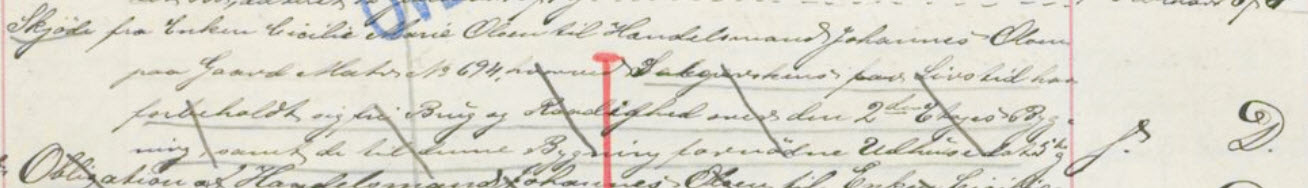 Skjöde fra Enken Cicilie Marie Olsen til Handelsmand Johannes Olsen
paa Gaard Matr No 694, hvorved Sælgerskens for Livstid har
forbeholdt sig fri Brug og Raadighed over den 2den Etages Byg-
ning, samt de til denne Bygning fornödne Udhuse
D.
Obligation af Handelsmand Johannes Olsen til Enken Cicilie